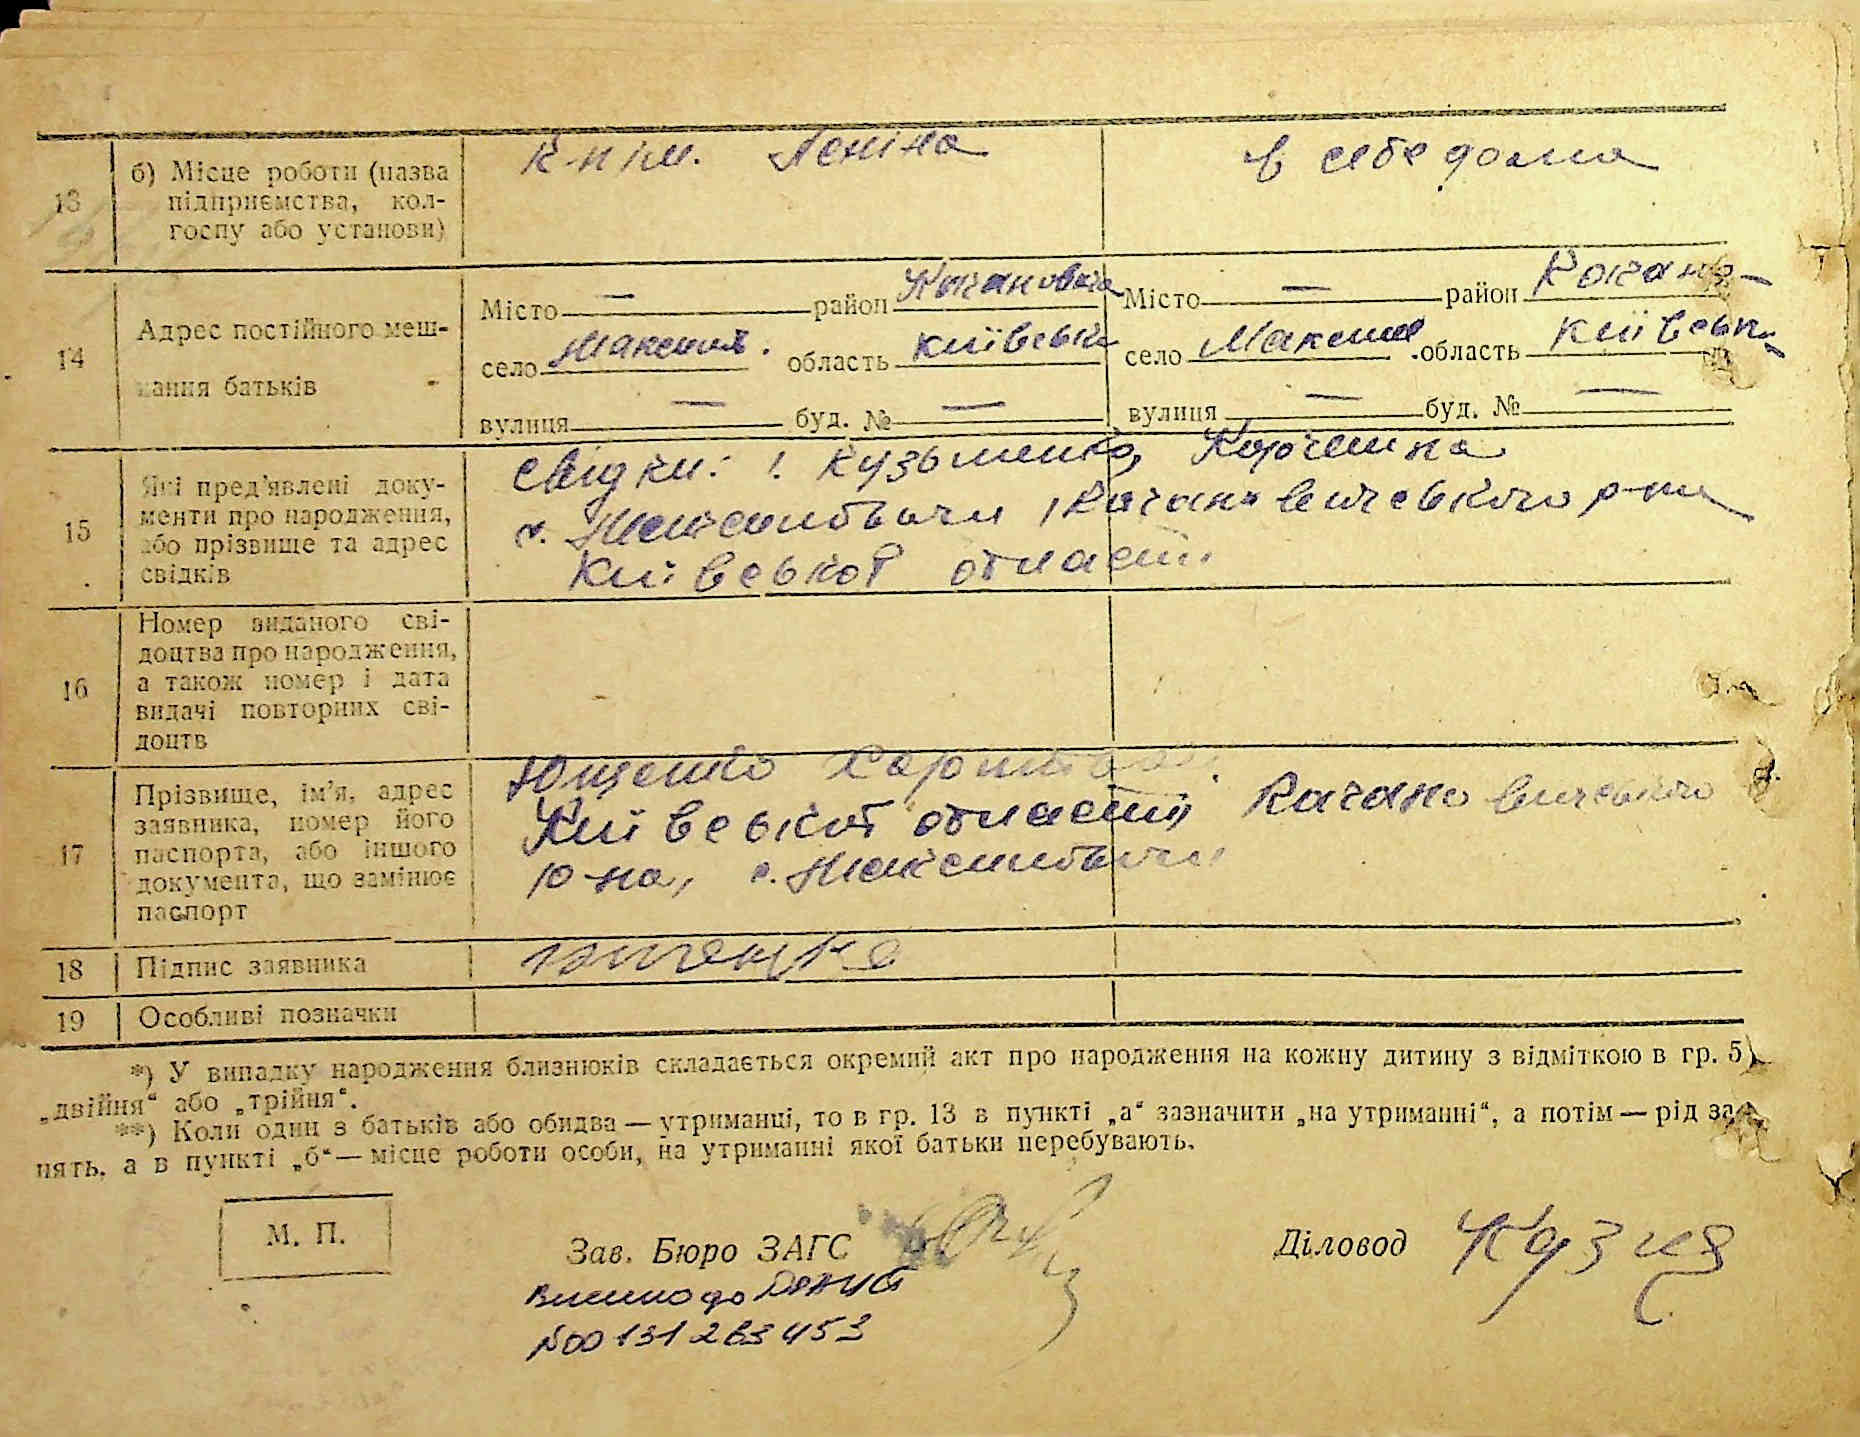 13 б) Місце роботи (назва підприємства, колгоспу або установи)
к-п ім. Леніна
в себе дома
14 Адрес постійного меш-
кання батьків
Місто — район Кагановича
село Максим. область Київськ
вулиця — буд. № —
Місто — район Кагано-
село Максим. область Київськ.
вулиця — буд. № —
15 Які пред'явлені доку-
менти про народження,
або прізвище та адрес
свідків
Свідки: Кузьменко, Корчешка
с. Максимовичи, Кагановичевського р-ну
Київської області
16 Номер виданого сві-
доцтва про народження,
а також номер і дата
видачі повторних сві-
доцтв
17 Прізвище, ім'я, адрес
заявника, номер його
паспорта, або іншого
документа, що замінює
паспорт
Ющенко Харитон
Київської області, Кагановичевського
р-на, с. Максимовичи
18 Підпис заявника
19 Особливі позначки
*) У випадку народження близнюків складається окремий акт про народження на кожну дитину з відміткою в гр. 5)
„двійня“ або „трійня“.
**) Коли один з батьків або обидва — утриманці, то в гр. 13 в пункті „а“ зазначити „на утриманні“, а потім — рід за-
нять, а в пункті „б“ — місце роботи особи, на утриманні якої батьки перебувають.
М. П.
Зав. Бюро ЗАГС
Діловод
Внесено до ДРАЦСГ
№00131283453